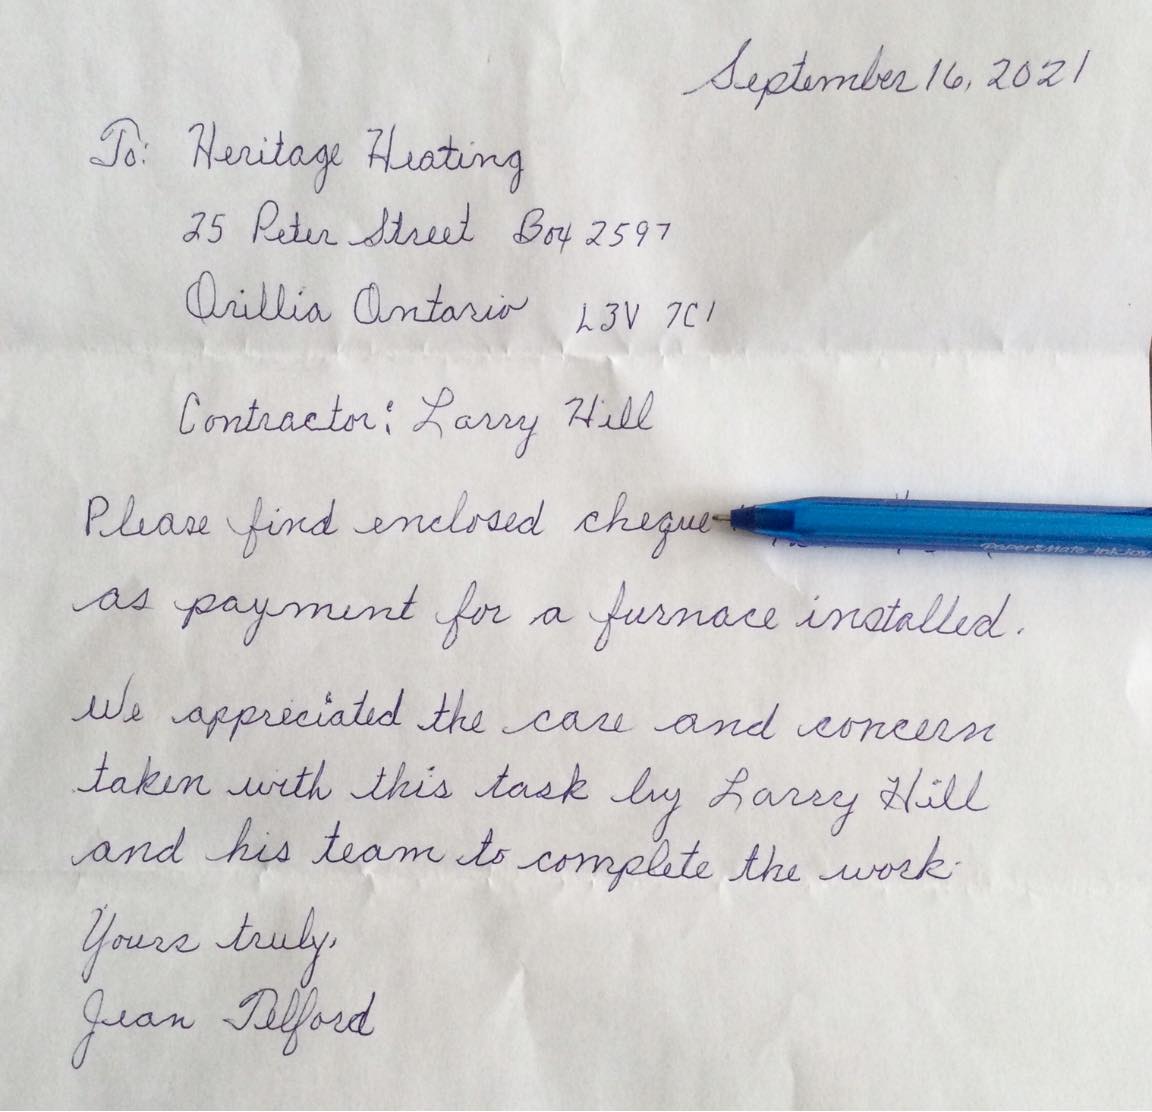 September 16, 2021
To: Heritage Heating
25 Peter Street Box 2597
Orillia Ontario L3V 7C1
Contractor: Larry Hill
Please find enclosed cheque
PaperMate InkJoy
as payment for a furnace installed.
We appreciated the care and concern
taken with this task by Larry Hill
and his team to complete the work.
Yours truly,
Jean Telford